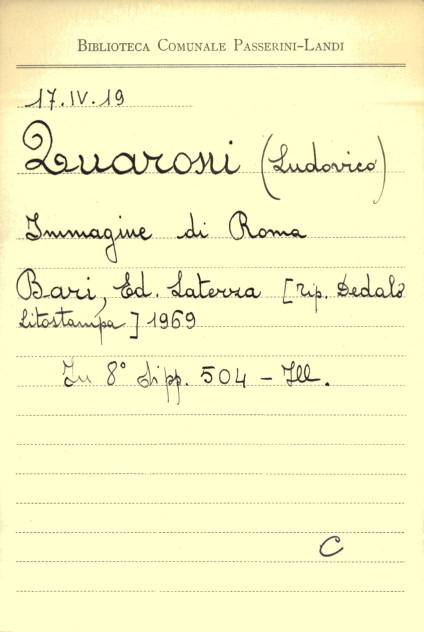 BIBLIOTECA COMUNALE PASSERINI-LANDI
17.IV.19
Quaroni (Ludovico)
Immagine di Roma
Bari, Ed. Laterza [tip. Dedalo
Litostampa] 1969
In 8° di pp. 504 - Ill.
C